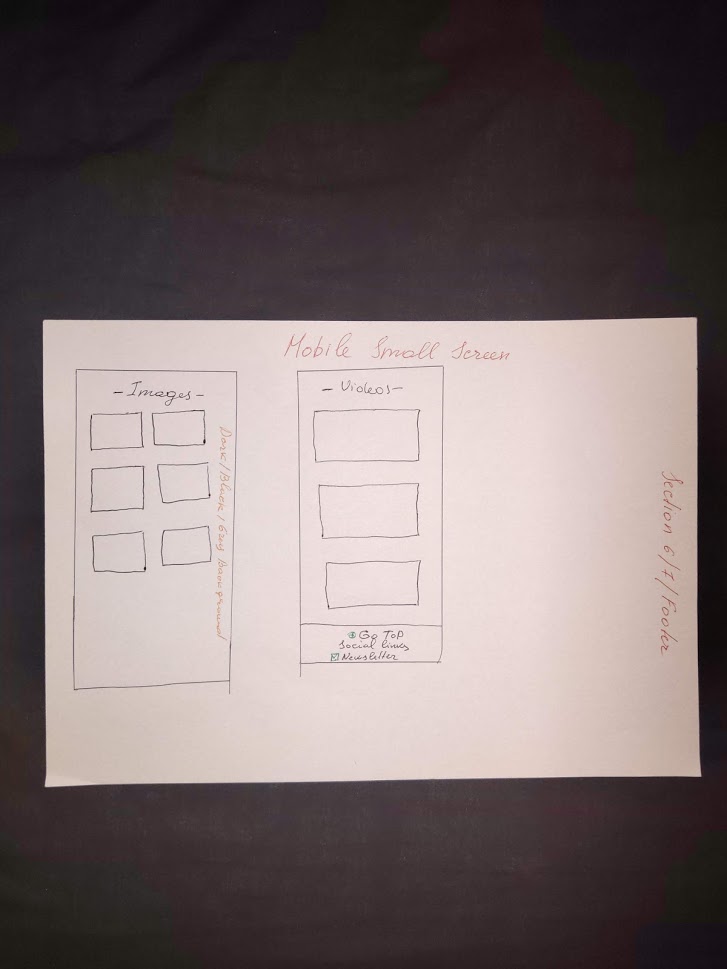 Mobile Small Screen
- Images -
Dark/Black/Grey Background
- Videos -
Go Top
Social Links
Newsletter
Section 6/7/Footer